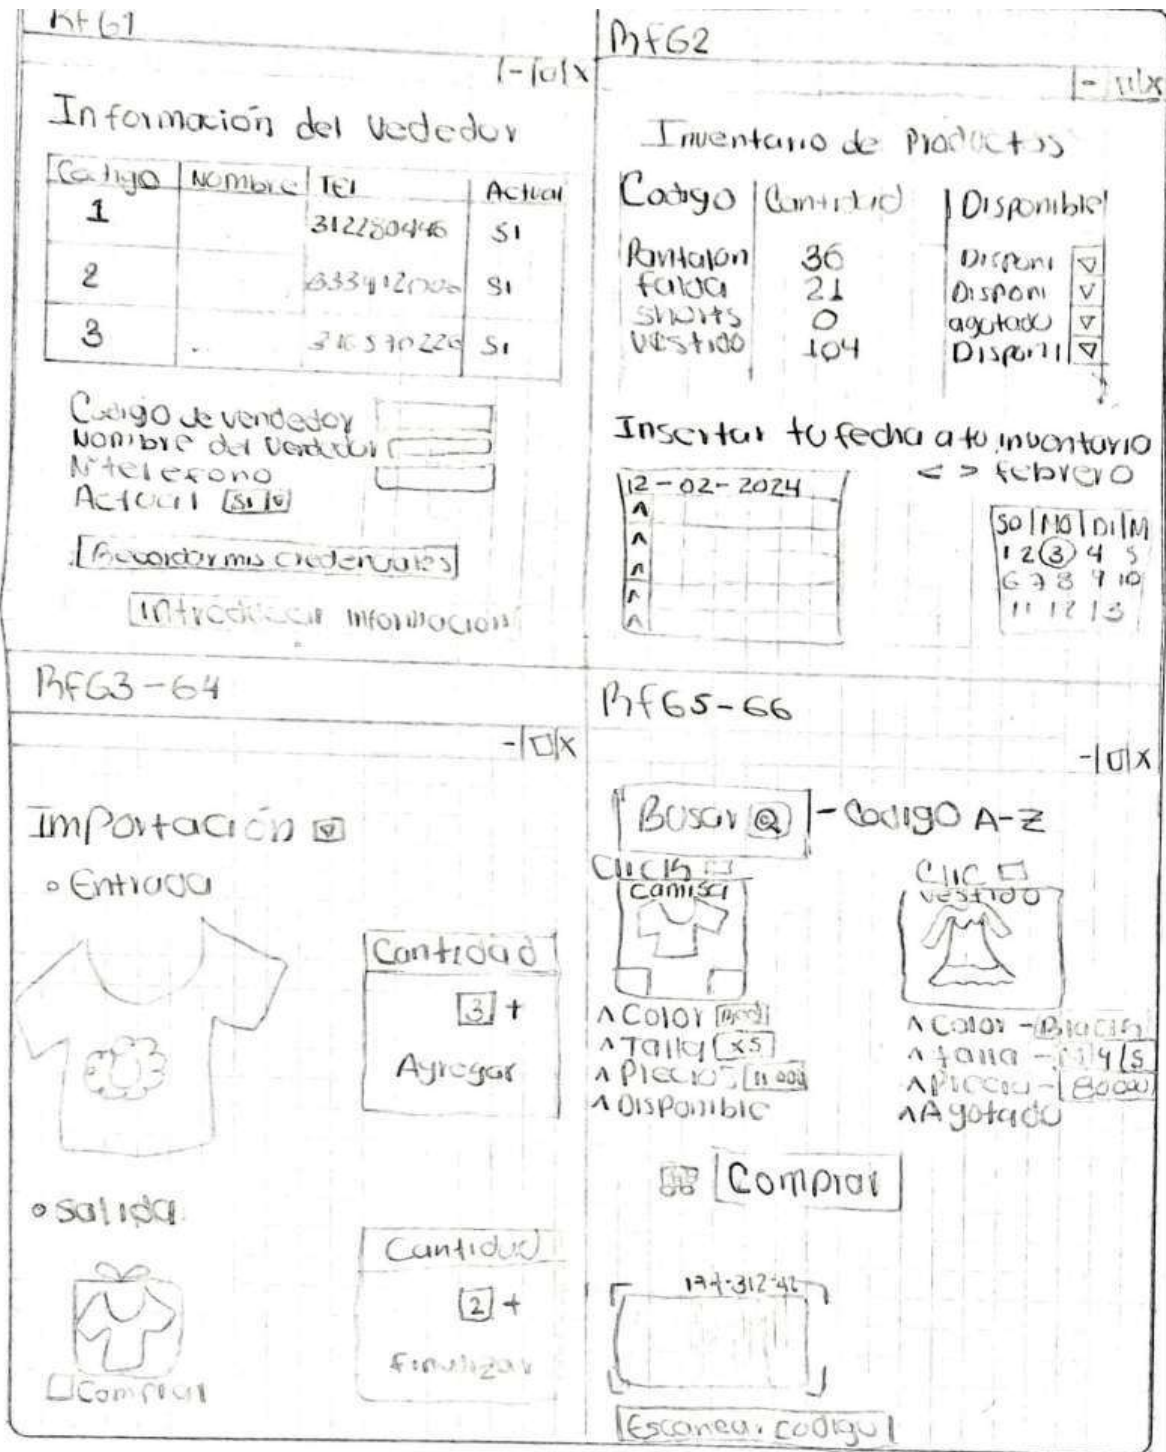 Rf61
-|□|x
Información del Vededor
Codigo | Nombre | Tel | Actual
1 312280446 SI
2 SI
3 SI
Codigo de vendedor
Nombre del Vendedor
N° telefono
Actual SI
Recordar mis credenciales
Introducir información
Rf62
Inventario de Productos
Codigo | Cantidad | Disponible
Pantalon 36 Disponi
falda 21 Disponi
shorts 0 agotado
vestido 104 Disponi
Insertar tu fecha a tu inventario
< > febrero
12-02-2024
SO | MO | DI | M
1 2 3 4 5
6 7 8 9 10
11 12 13
Rf63-64
-|□|x
Importación
Entrada
Cantidad
3 +
Agregar
Salida
Cantidad
2 +
Finalizar
Comprar
Rf65-66
-|□|x
Buscar - Codigo A-Z
Click
Camisa
^ Color
^ Talla XS
^ Precios
^ Disponible
Clic
Vestido
^ Color -
^ talla - S
^ Precio - 80000
^ Agotado
Comprar
Escanear codigo